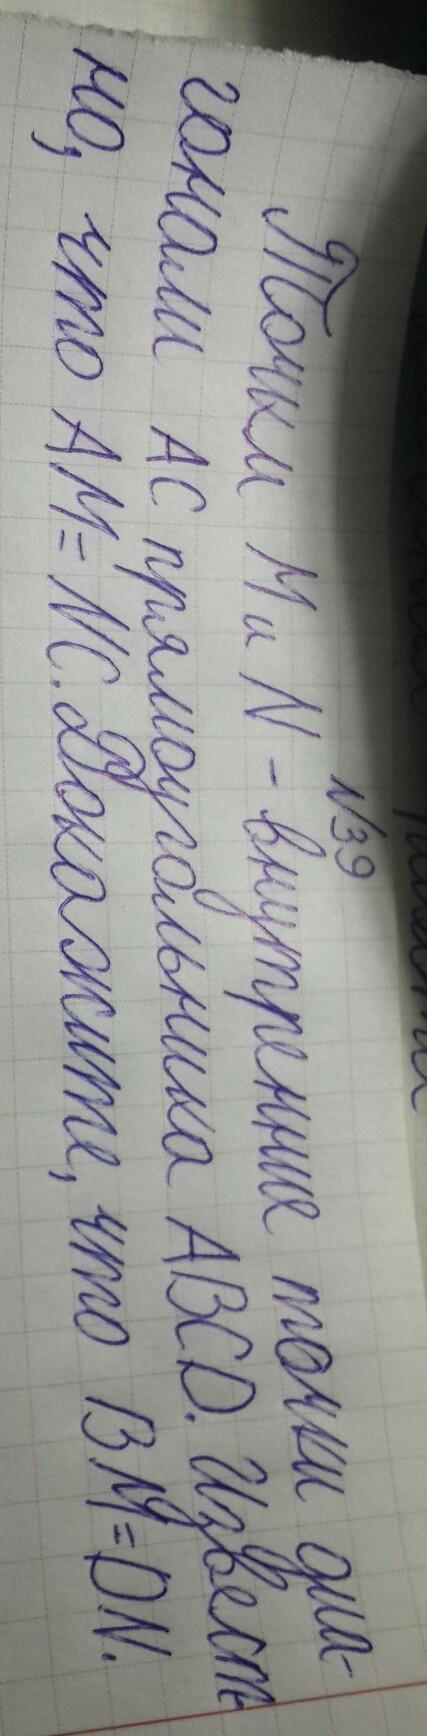 №39
Точки M и N - внутренние точки диа-
гонали AC прямоугольника ABCD. Извест
но, что AM = NC. Докажите, что BM = DN.